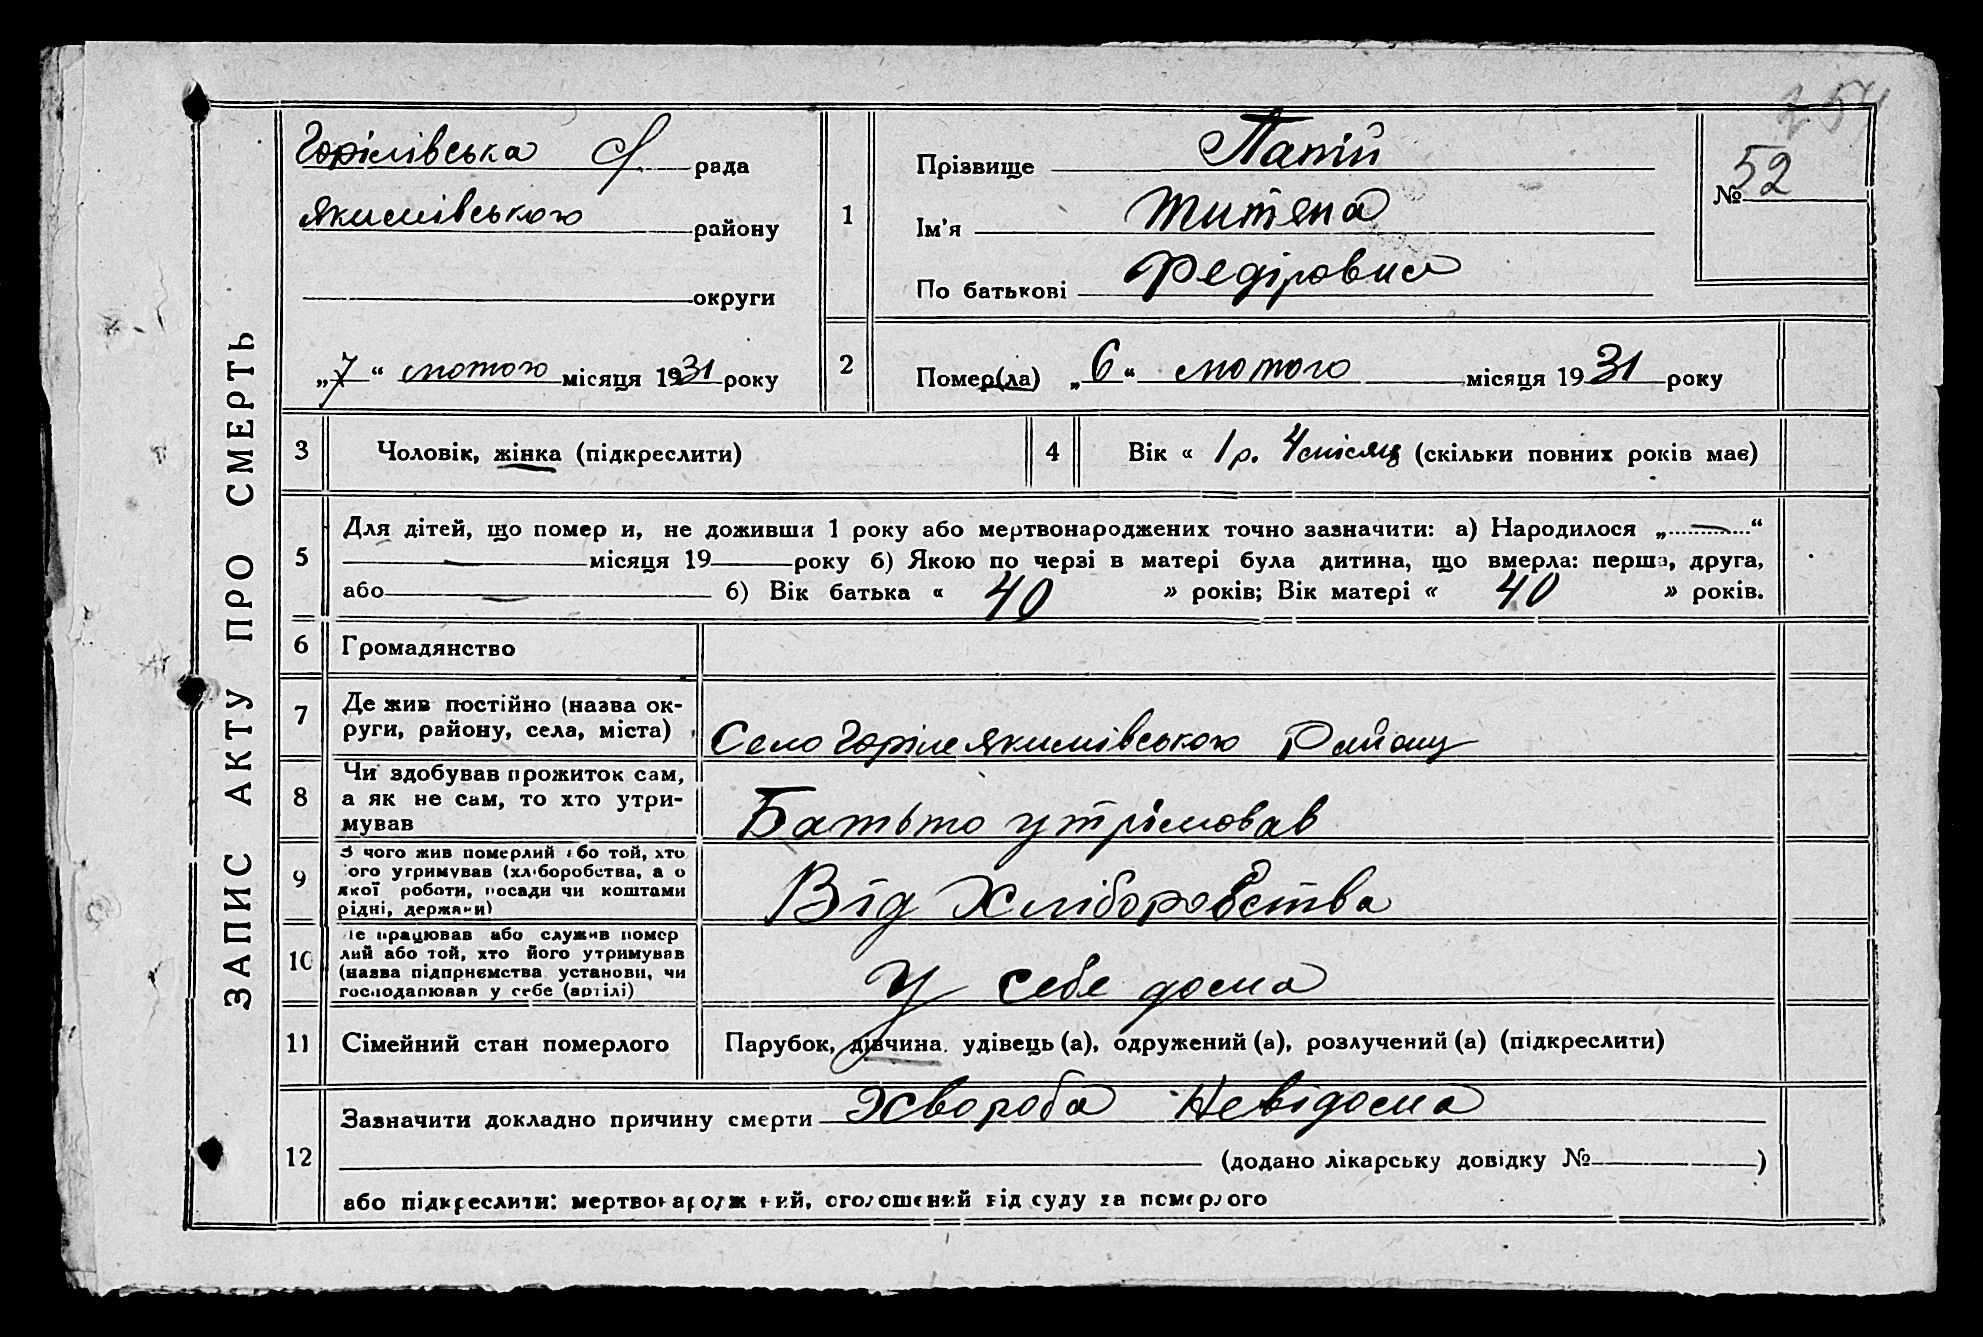 254
ЗАПИС АКТУ ПРО СМЕРТЬ
Горілівська С/ рада
Якимівського району
округи
„7“ лютого місяця 1931 року
1
Прізвище Папій
Ім'я
По батькові Федіровна
№ 52
2
Помер(ла) „6“ лютого місяця 1931 року
3 Чоловік, жінка (підкреслити)
4 Вік « 1 р. 4 місяц (скільки повних років має)
5
Для дітей, що помер и, не доживши 1 року або мертвонароджених точно зазначити: а) Народилося „ — “
— місяця 19 року б) Якою по черзі в матері була дитина, що вмерла: перша, друга,
або — б) Вік батька « 40 » років; Вік матері « 40 » років.
6 Громадянство
7 Де жив постійно (назва ок-
руги, району, села, міста)
Село Горіле Якимівського Району
8 Чи здобував прожиток сам,
а як не сам, то хто утри-
мував
Батько утрімовав
9 З чого жив померлий або той, хто
його утримував (хліборобства, а о
якої роботи, посади чи коштами
рідні, держави)
Від Хліборобства
10 Де працював або служив помер
лий або той, хто його утримував
(назва підприємства установи, чи
господарював у себе (артілі)
У себе дома
11 Сімейний стан померлого
Парубок, дівчина, удівець (а), одружений (а), розлучений (а) (підкреслити)
12
Зазначити докладно причину смерти Хвороба Невідома
(додано лікарську довідку № )
або підкреслити: мертвонароджений, оголошений від суду за померлого